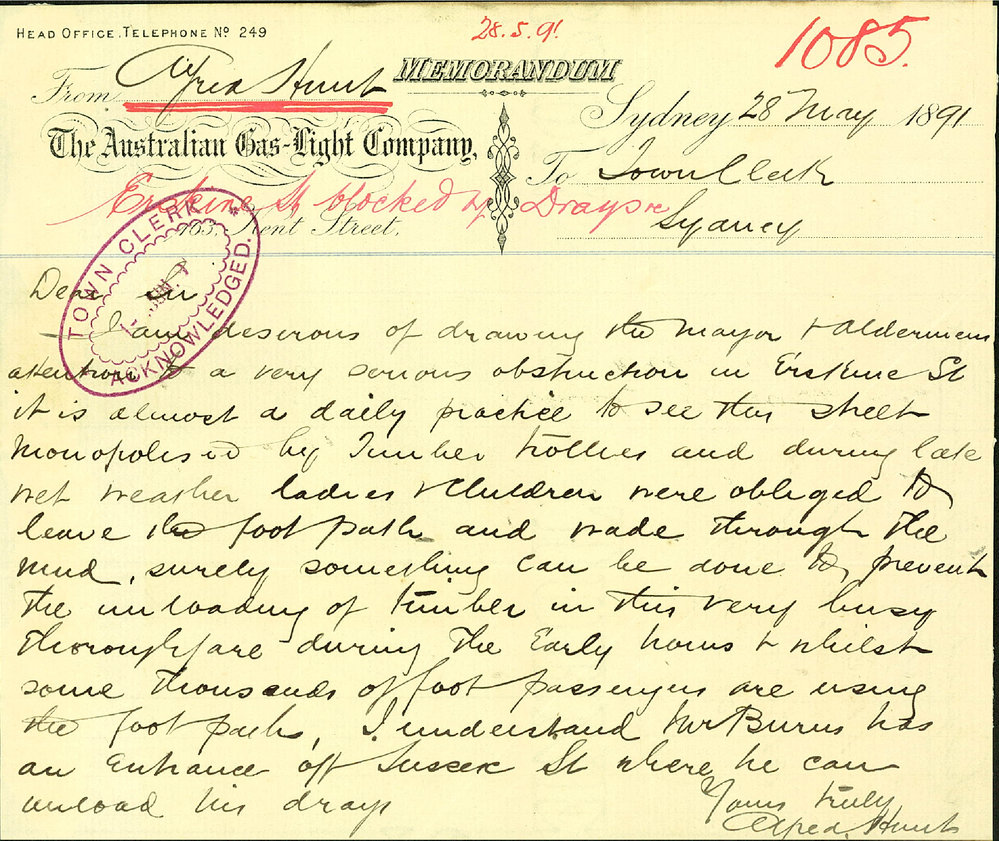 HEAD OFFICE. TELEPHONE No 249
28.5.91
1085.
From Alfred Hunt
MEMORANDUM
Sydney 28 May 1891
The Australian Gas-Light Company,
To Town Clerk
Erskine St blocked by Drays &c
163, Kent Street,
Sydney
TOWN CLERK
JUN
ACKNOWLEDGED.
Dear Sir
I am deserous of drawing the Mayor & Aldermens
attention to a very serious obstruction in Erskine St
it is almost a daily practice to see this street
monopolised by Timber trollies and during late
wet weather ladies & Children were obliged to
leave the foot path and wade through the
mud, surely something can be done to prevent
the unloading of timber in this very busy
thoroughfare during the Early hours & whilst
some thousands of foot passengers are using
the foot paths, I understand Mr Burns has
an Entrance off Sussex St where he can
unload his drays
Yours truly
Alfred Hunt